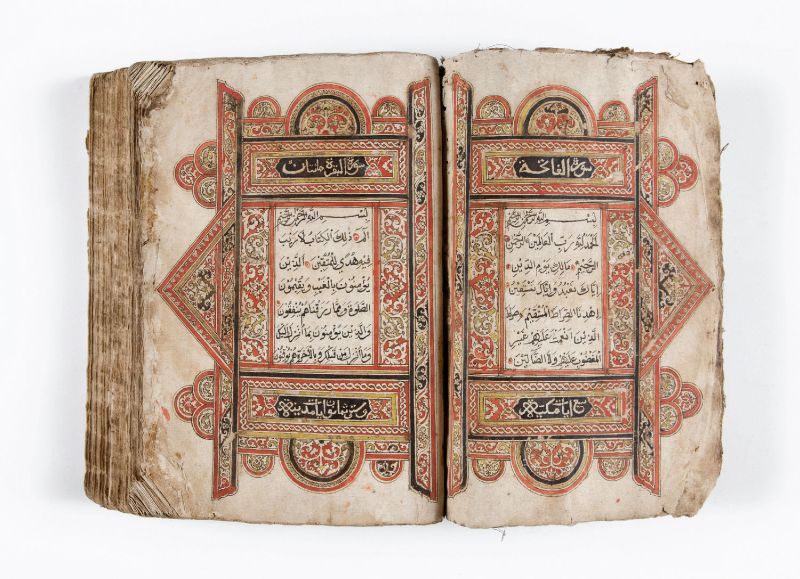 سورة الفاتحة
بسم الله الرحمن الرحيم
الحمد لله رب العالمين الرحمن
الرحيم مالك يوم الدين
إياك نعبد وإياك نستعين
إهدنا الصراط المستقيم صراط
الذين أنعمت عليهم غير
المغضوب عليهم ولا الضالين
سبع ايات مكية
سورة البقرة مائتان
بسم الله الرحمن الرحيم
الم ذلك الكتاب لا ريب
فيه هدى للمتقين الذين
يؤمنون بالغيب ويقيمون
الصلوة ومما رزقناهم ينفقون
والذين يؤمنون بما أنزل إليك
وما أنزل من قبلك وبالآخرة هم يوقنون
وست وثمانون ايات مدينة